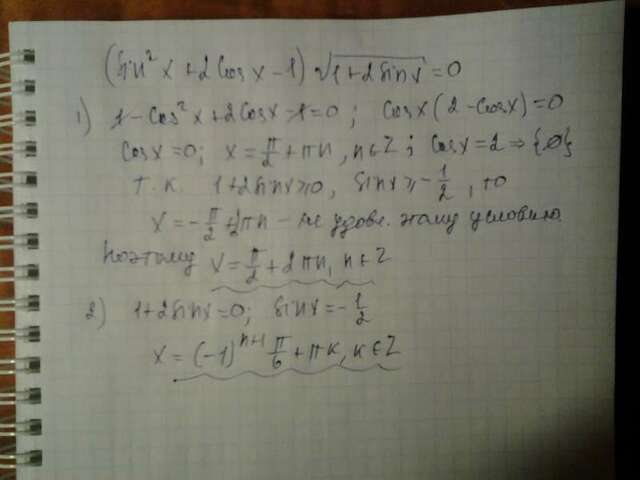 (sin²x + 2cosx - 1) √(1 + 2sinx) = 0
1) 1 - cos²x + 2cosx - 1 = 0 ; cosx(2 - cosx) = 0
cosx = 0; x = π/2 + πn, n ∈ Z ; cosx = 2 ⇒ {∅}
т.к. 1 + 2sinx ≥ 0, sinx ≥ -1/2, то
x = -π/2 + 2πn - не удовл. этому условию.
поэтому x = π/2 + 2πn, n ∈ Z
2) 1 + 2sinx = 0; sinx = -1/2
x = (-1)ⁿ⁺¹ π/6 + πк, к ∈ Z